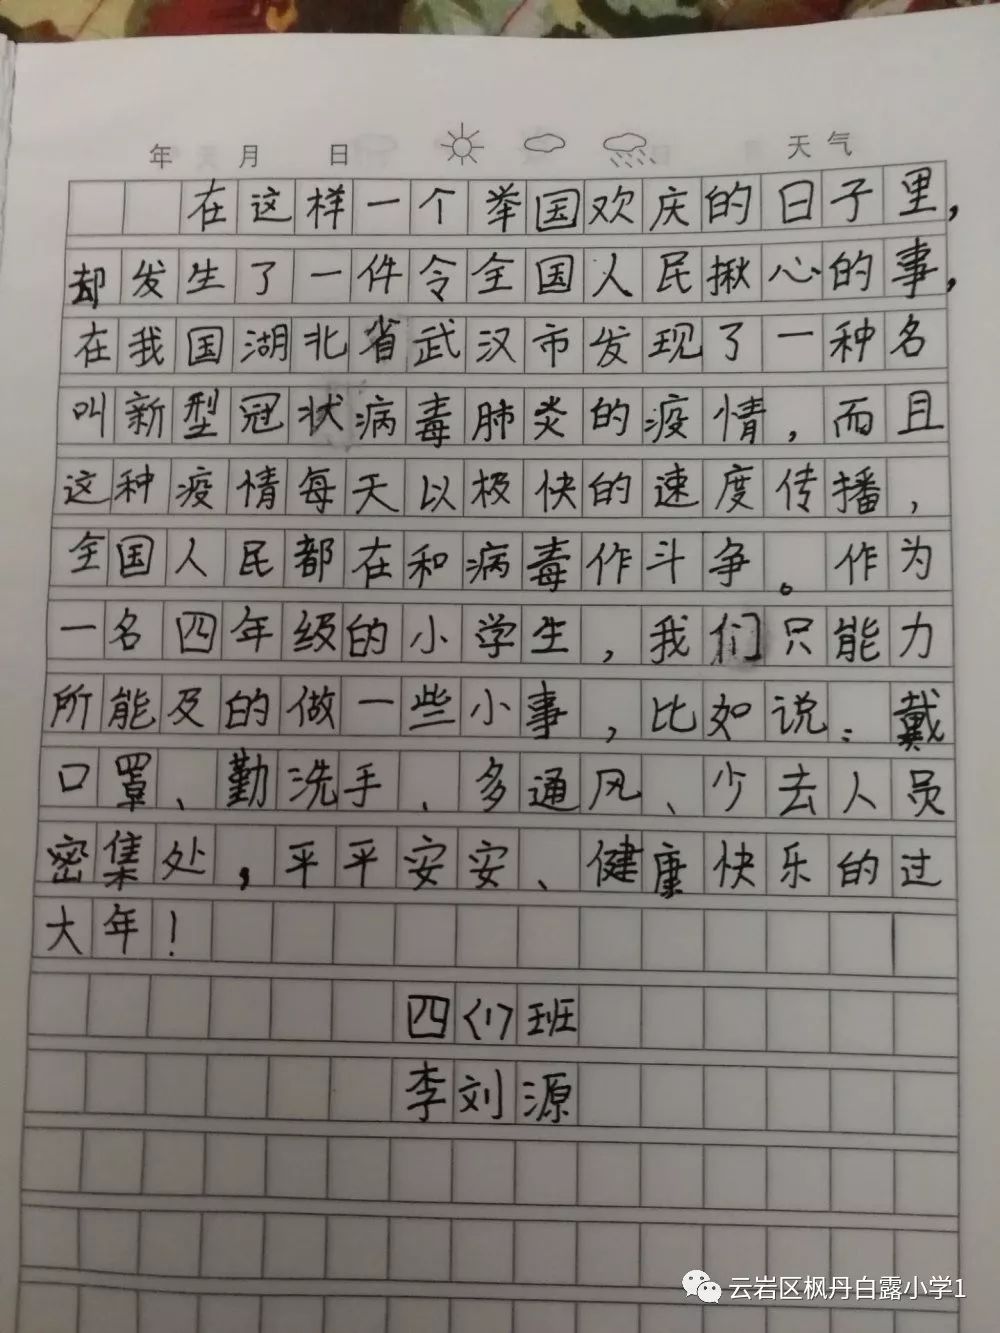 年 月 日 天气
在这样一个举国欢庆的日子里，
却发生了一件令全国人民揪心的事，
在我国湖北省武汉市发现了一种名
叫新型冠状病毒肺炎的疫情，而且
这种疫情每天以极快的速度传播，
全国人民都在和病毒作斗争。作为
一名四年级的小学生，我们只能力
所能及的做一些小事，比如说：戴
口罩、勤洗手、多通风、少去人员
密集处，平平安安、健康快乐的过
大年！
四〈1〉班
李刘源
云岩区枫丹白露小学1